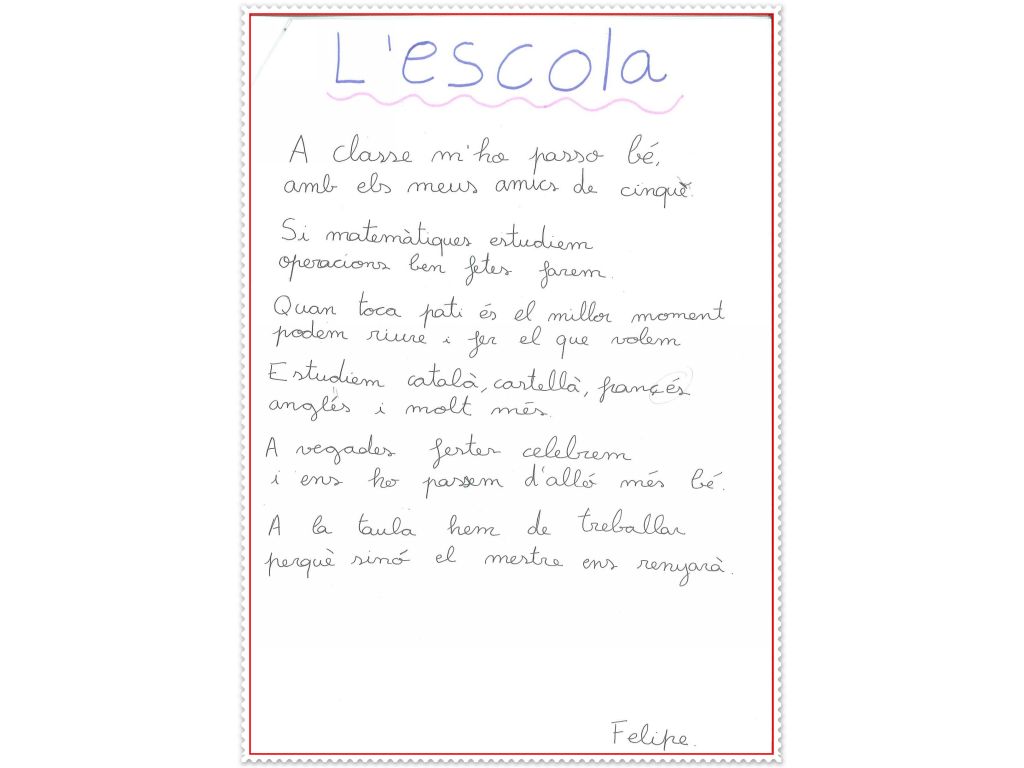 L'escola
A classe m'ho passo bé,
amb els meus amics de cinquè.
Si matemàtiques estudiem
operacions ben fetes farem.
Quan toca pati és el millor moment
podem riure i fer el que volem
Estudiem català, castellà, françés
anglés i molt més.
A vegades festes celebrem
i ens ho passem d'alló més bé.
A la taula hem de treballar
perquè sinó el mestre ens renyarà.
Felipe.